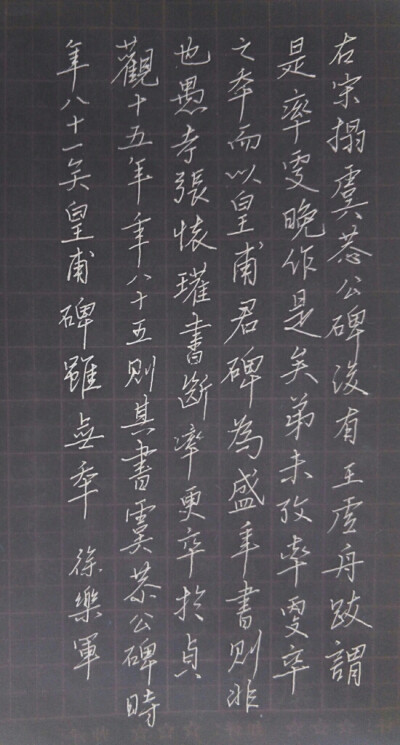 右宋搨虞恭公碑後有王虛舟跋謂
是率更晚作是矣弟未攷率更卒
之年而以皇甫君碑為盛年書則非
也愚考張懷瓘書斷率更卒於貞
觀十五年年八十五則其書虞恭公碑時
年八十一矣皇甫碑雖無年 徐樂軍